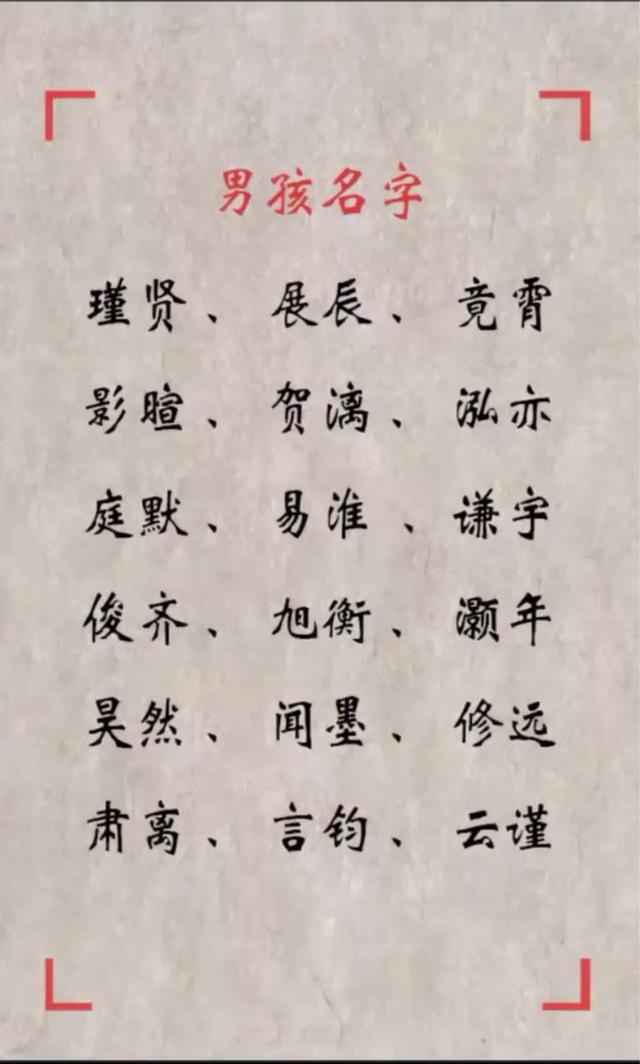 男孩名字
瑾贤、展辰、竟霄
影暄、贺漓、泓亦
庭默、易淮、谦宇
俊齐、旭衡、灏年
昊然、闻墨、修远
肃离、言钧、云谨